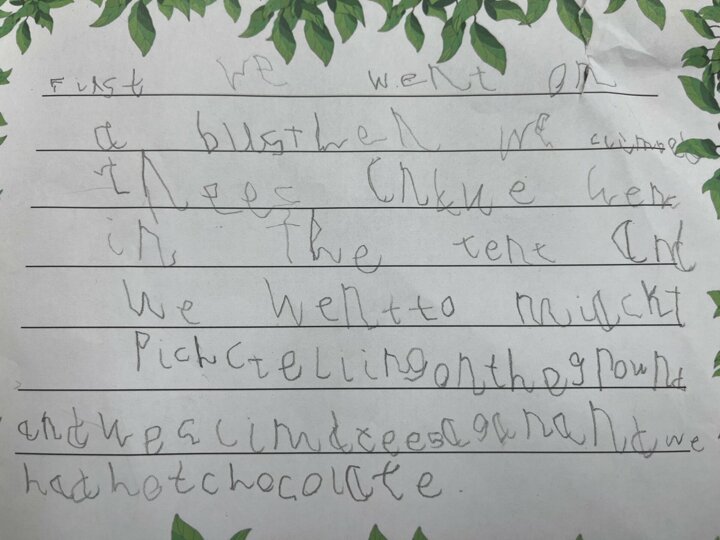 First we went on
a busthen we climped
trees andwe went
in the tent and
we wentto
Pich telling on the grownd
andwe climd trees agan and we
had hot chocolate.